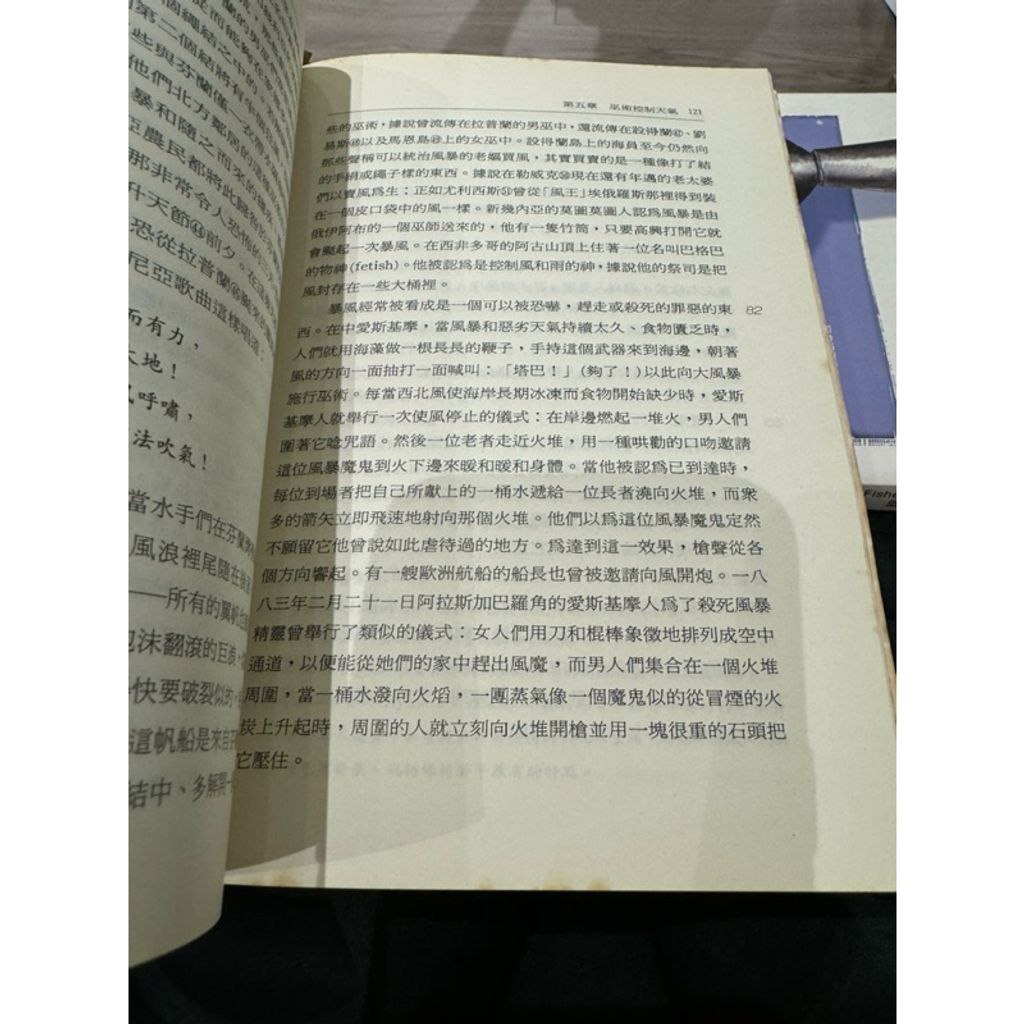 第二個結將有
些與芬蘭僅一衣
他們北方鄰居的這種
暴和隨之而來的
亞農民都將此
那非常令人恐怖的
升天節㊹前夕。在這
恐從拉普蘭
尼亞歌曲這樣唱道：
而有力，
大地！
呼嘯，
法吹氣！
當水手們在芬蘭
風浪裡尾隨在後
——所有的翼帆
泡沫翻滾的巨浪
快要破裂似的，
這帆船是來自
結中、多解開一
第五章 巫術控制天氣 121
些的巫術，據說曾流傳在拉普蘭的男巫中，還流傳在設得蘭㊼、劉
易斯㊽以及馬恩島㊾上的女巫中。設得蘭島上的海員至今仍然向
那些聲稱可以統治風暴的老嫗買風，其實買賣的是一種像打了結
的手絹或繩子樣的東西。據說在勒威克㊿現在還有年邁的老太婆
們以賣風為生：正如尤利西斯曾從「風王」埃俄羅斯那裡得到裝
在一個皮口袋中的風一樣。新幾內亞的莫圖莫圖人認為風暴是由
俄伊阿布的一個巫師送來的，他有一隻竹筒，只要高興打開它就
會颳起一次暴風。在西非多哥的阿古山頂上住著一位名叫巴格巴
的物神(fetish)。他被認為是控制風和雨的神，據說他的祭司是把
風封存在一些大桶裡。
暴風經常被看成是一個可以被恐嚇，趕走或殺死的罪惡的東 82
西。在中愛斯基摩，當風暴和惡劣天氣持續太久、食物匱乏時，
人們就用海藻做一根長長的鞭子，手持這個武器來到海邊，朝著
風的方向一面抽打一面喊叫：「塔巴！」(夠了！)以此向大風暴
施行巫術。每當西北風使海岸長期冰凍而食物開始缺少時，愛斯
基摩人就舉行一次使風停止的儀式：在岸邊燃起一堆火，男人們
圍著它唸咒語。然後一位老者走近火堆，用一種哄勸的口吻邀請
這位風暴魔鬼到火下邊來暖和暖和身體。當他被認為已到達時，
每位到場者把自己所獻上的一桶水遞給一位長者澆向火堆，而眾
多的箭矢立即飛速地射向那個火堆。他們以為這位風暴魔鬼定然
不願留它他曾說如此虐待過的地方。為達到這一效果，槍聲從各
個方向響起。有一艘歐洲航船的船長也曾被邀請向風開炮。一八
八三年二月二十一日阿拉斯加巴羅角的愛斯基摩人為了殺死風暴
精靈曾舉行了類似的儀式：女人們用刀和棍棒象徵地排列成空中
通道，以便能從她們的家中趕出風魔，而男人們集合在一個火堆
周圍，當一桶水潑向火焰，一團蒸氣像一個魔鬼似的從冒煙的火
炭上升起時，周圍的人就立刻向火堆開槍並用一塊很重的石頭把
它壓住。